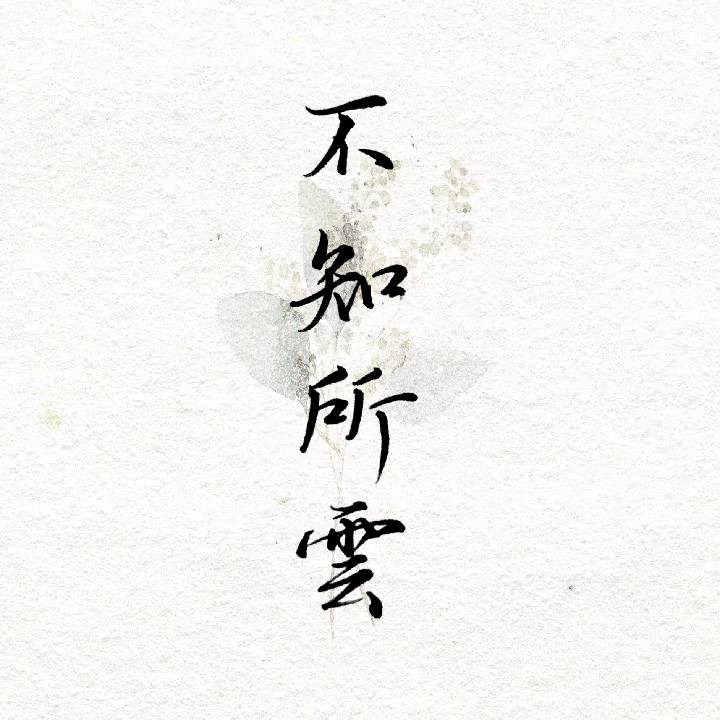 不知所雲